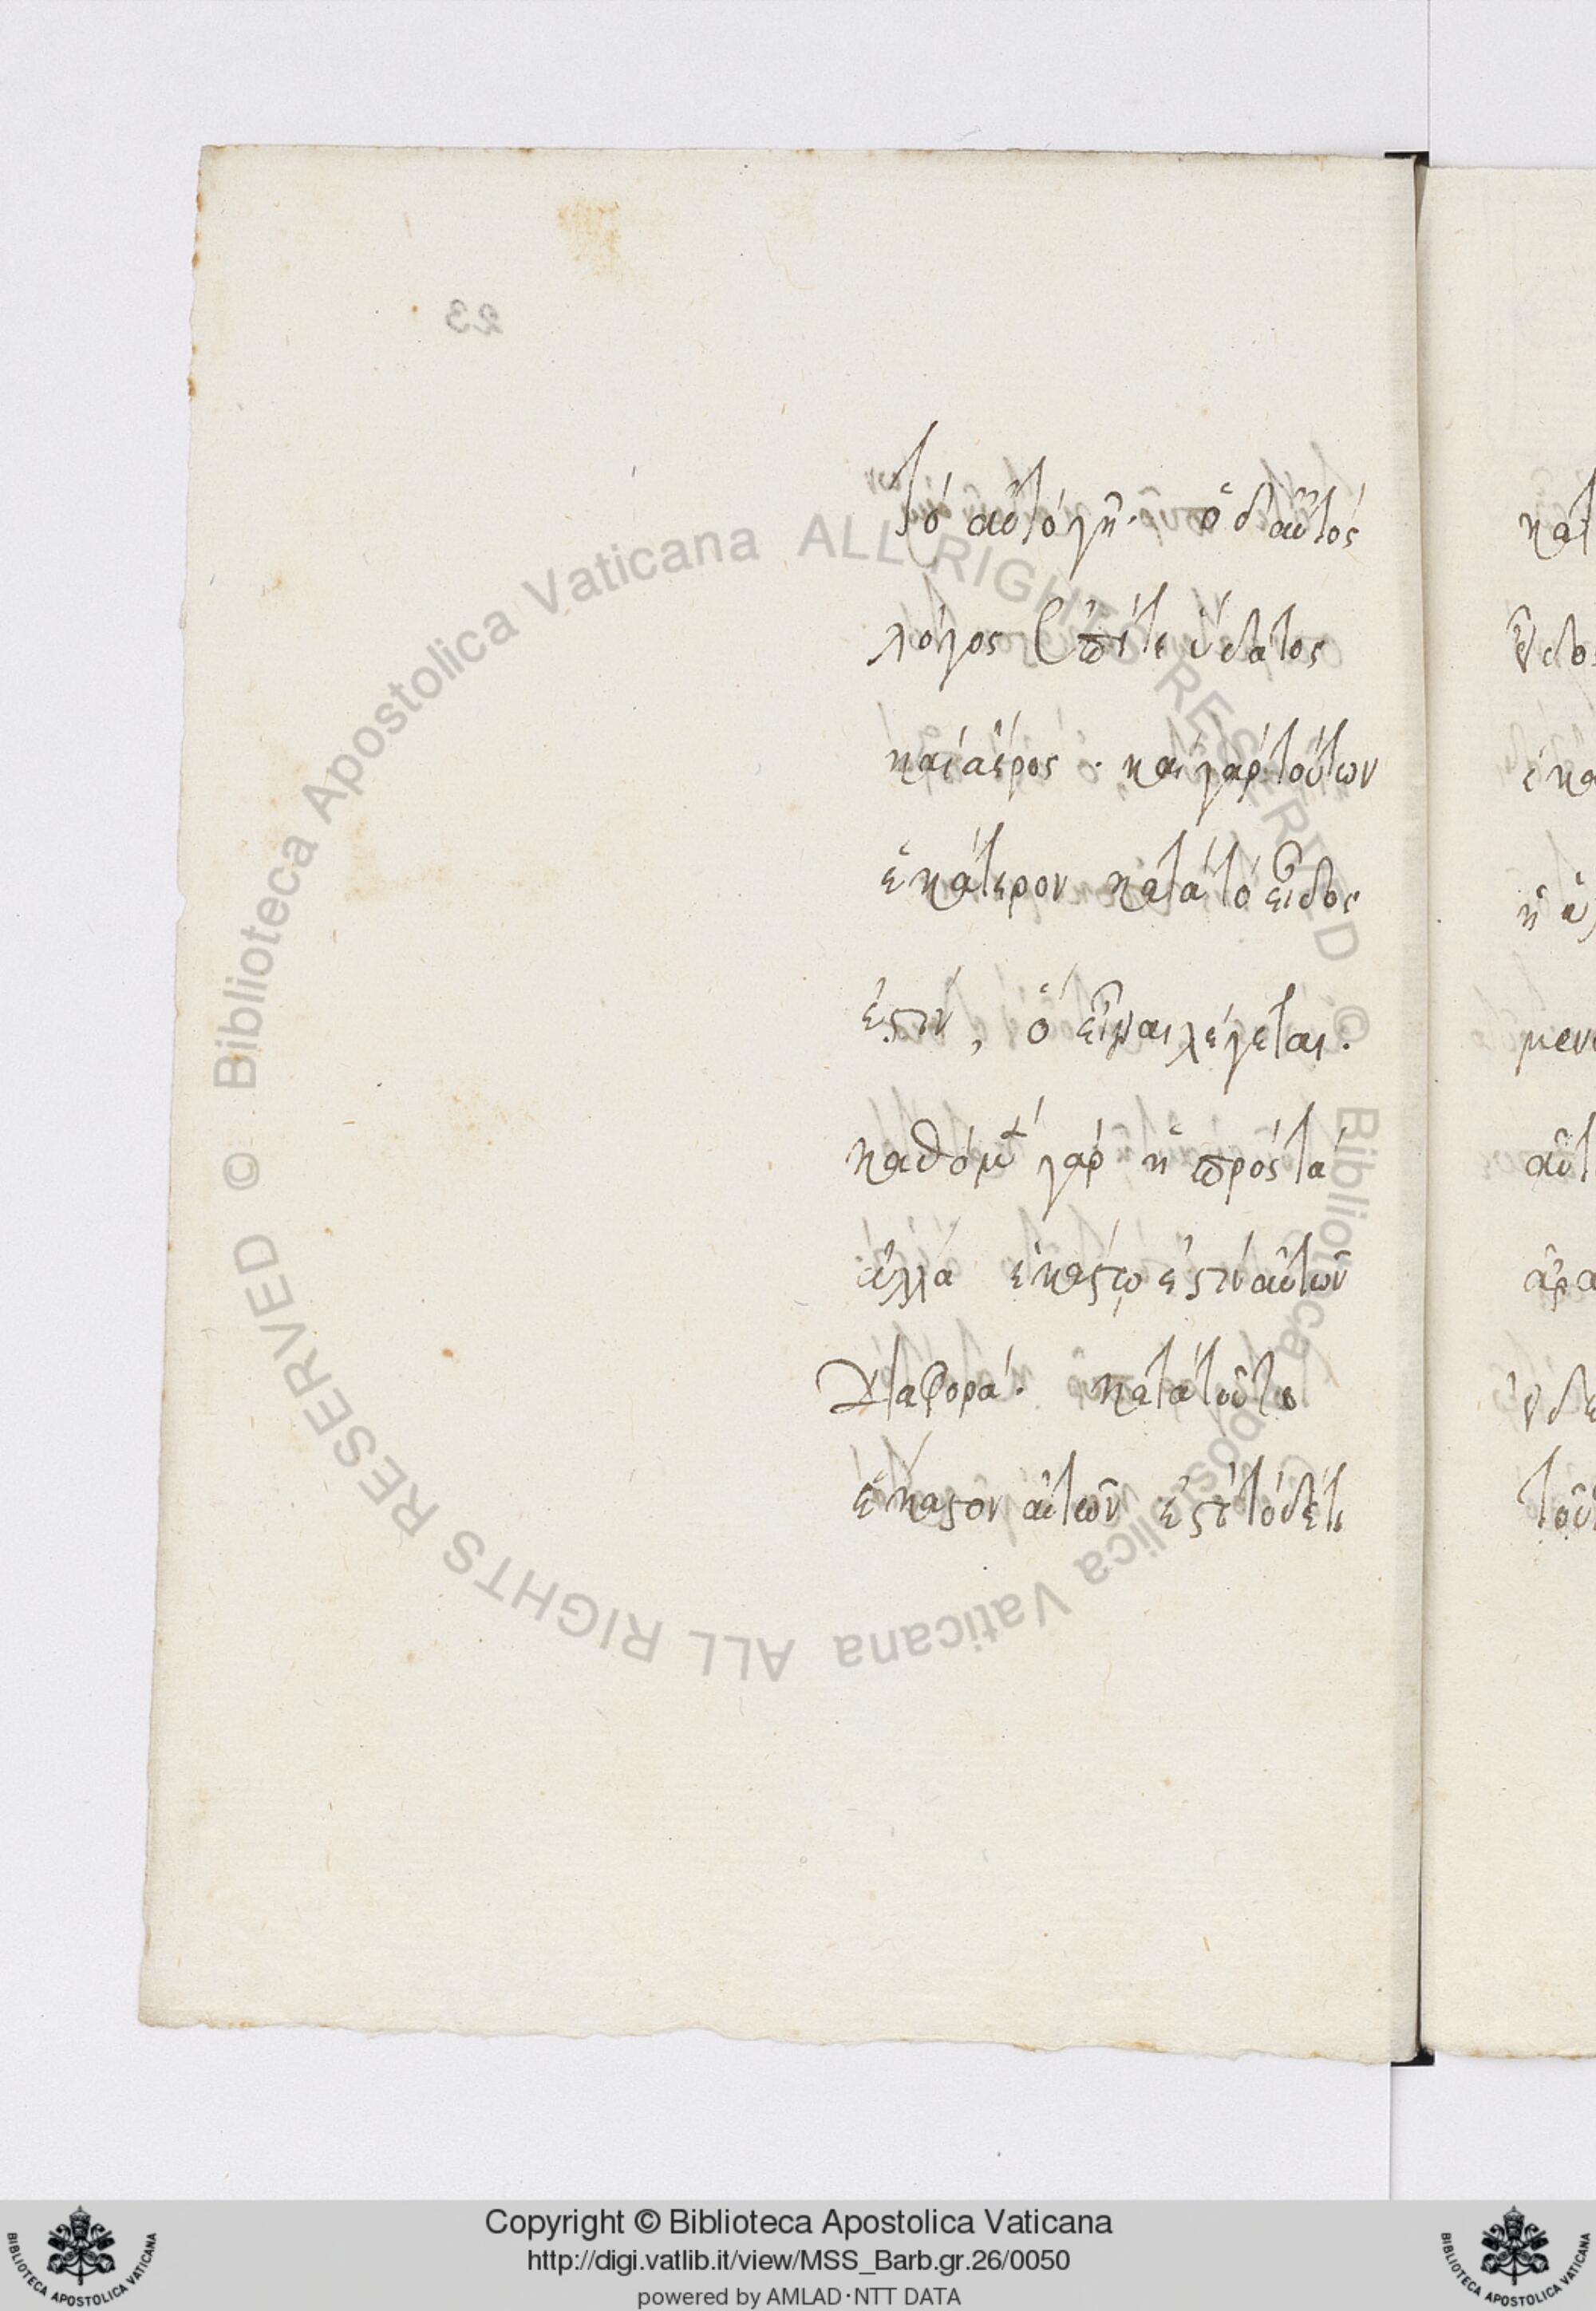 23
τὸ αὐτὸ γῆ· ὁ δ' αὐτὸς
λόγος ἐπί τε ὕδατος
καὶ ἀέρος · καὶ γὰρ τούτων
ἑκάτερον κατὰ τὸ εἶδος
ἐστὶν, ὃ εἶναι λέγεται.
καθὸ μτ γὰρ ἡ πρὸς τὰ
ἄλλα ἑκάστω ἐστὶν αὐτῶν
διαφορά. κατὰ τοῦτο
ἕκαστον αὐτῶν ἐστὶ τόδε τι
© Biblioteca Apostolica Vaticana ALL RIGHTS RESERVED © Biblioteca Apostolica Vaticana ALL RIGHTS RESERVED
Copyright © Biblioteca Apostolica Vaticana
http://digi.vatlib.it/view/MSS_Barb.gr.26/0050
powered by AMLAD·NTT DATA
BIBLIOTECA APOSTOLICA VATICANA
BIBLIOTECA APOSTOLICA VATICANA